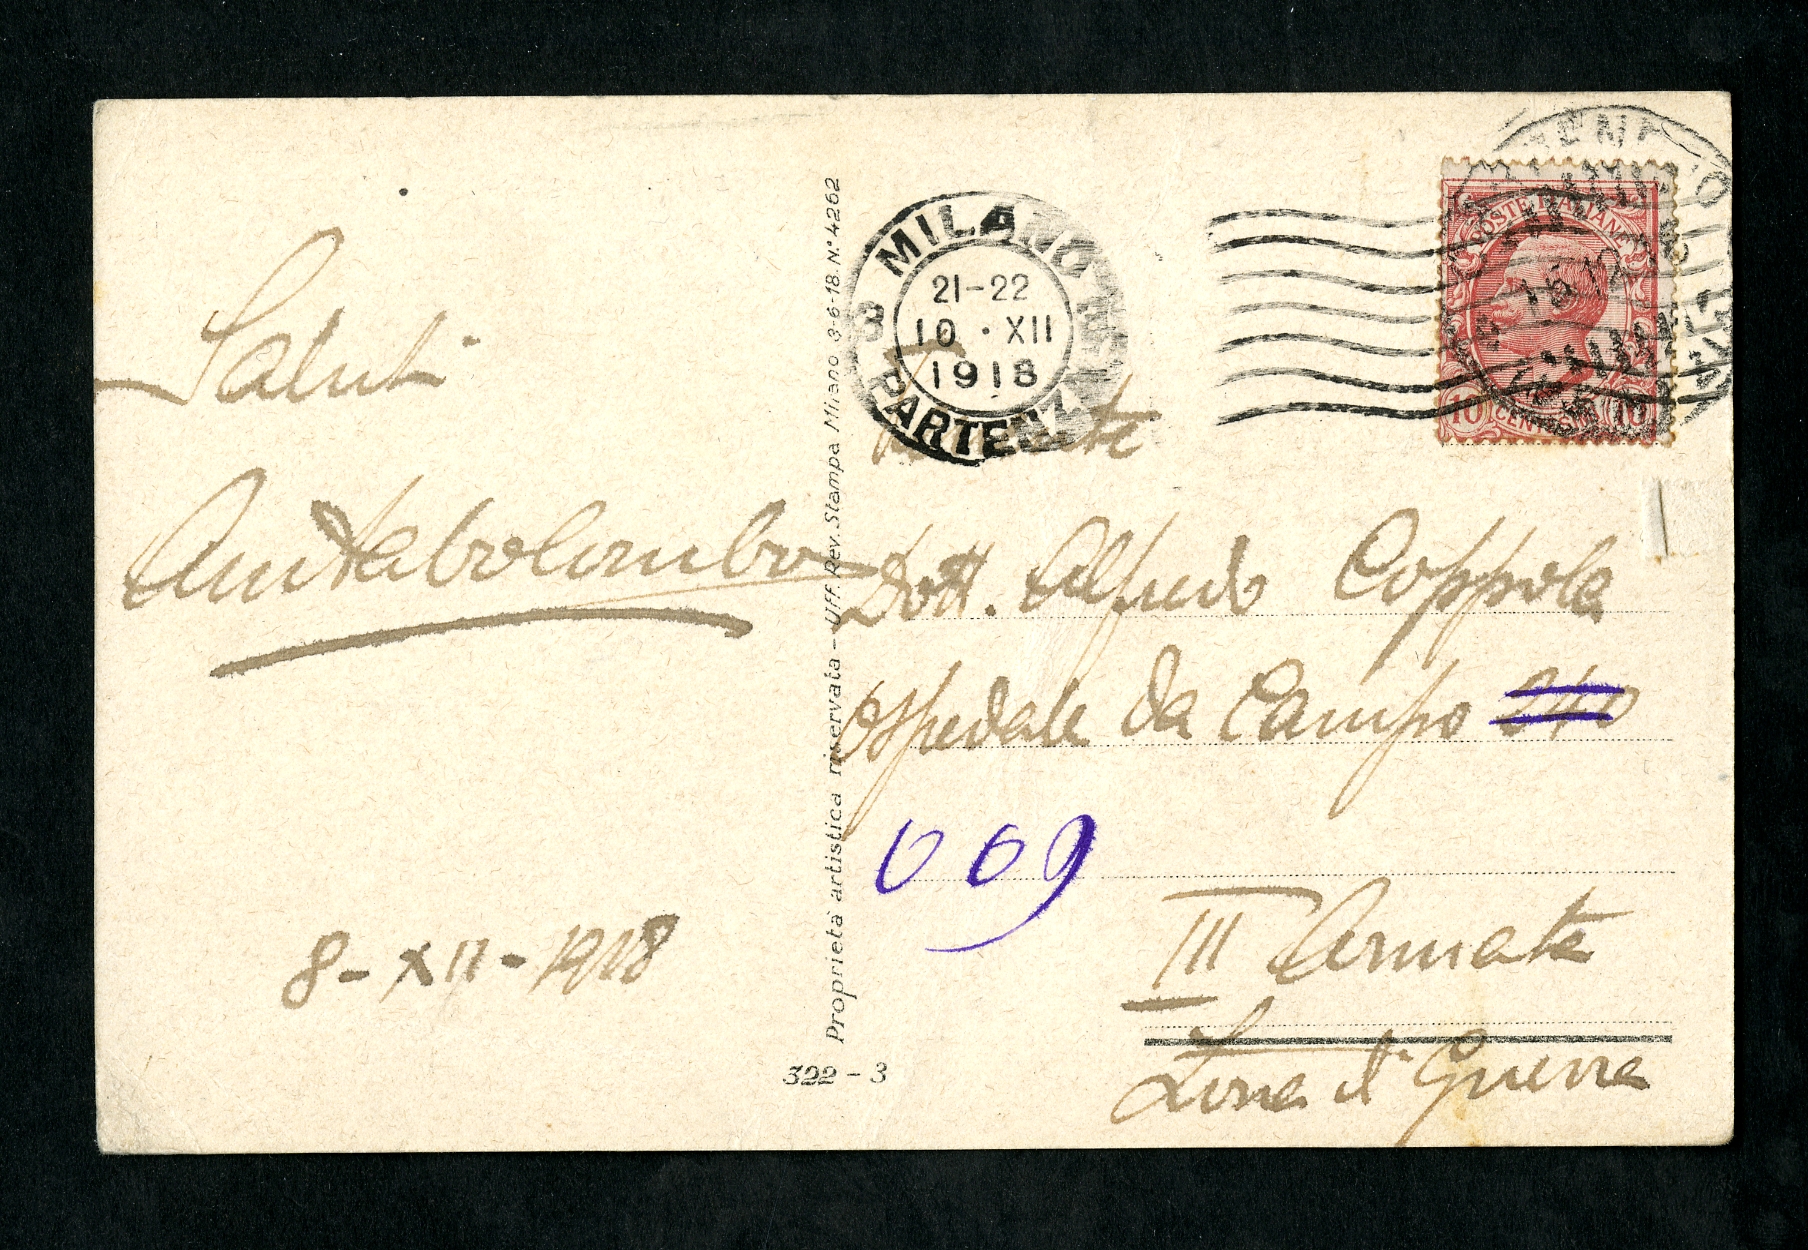 Saluti
Anita Colombo
8-XII-1918
Proprietà artistica riservata - Uff. Rev. Stampa Milano 3-6-18. N.° 4262
322 - 3
MILANO
21-22
10 · XII
1918
PARTENZ
POSTE ITALIANE
10 CENTESIMI 10
Dott. Alfredo Coppola
Ospedale da Campo 240
069
III Armata
Zona di Guerra